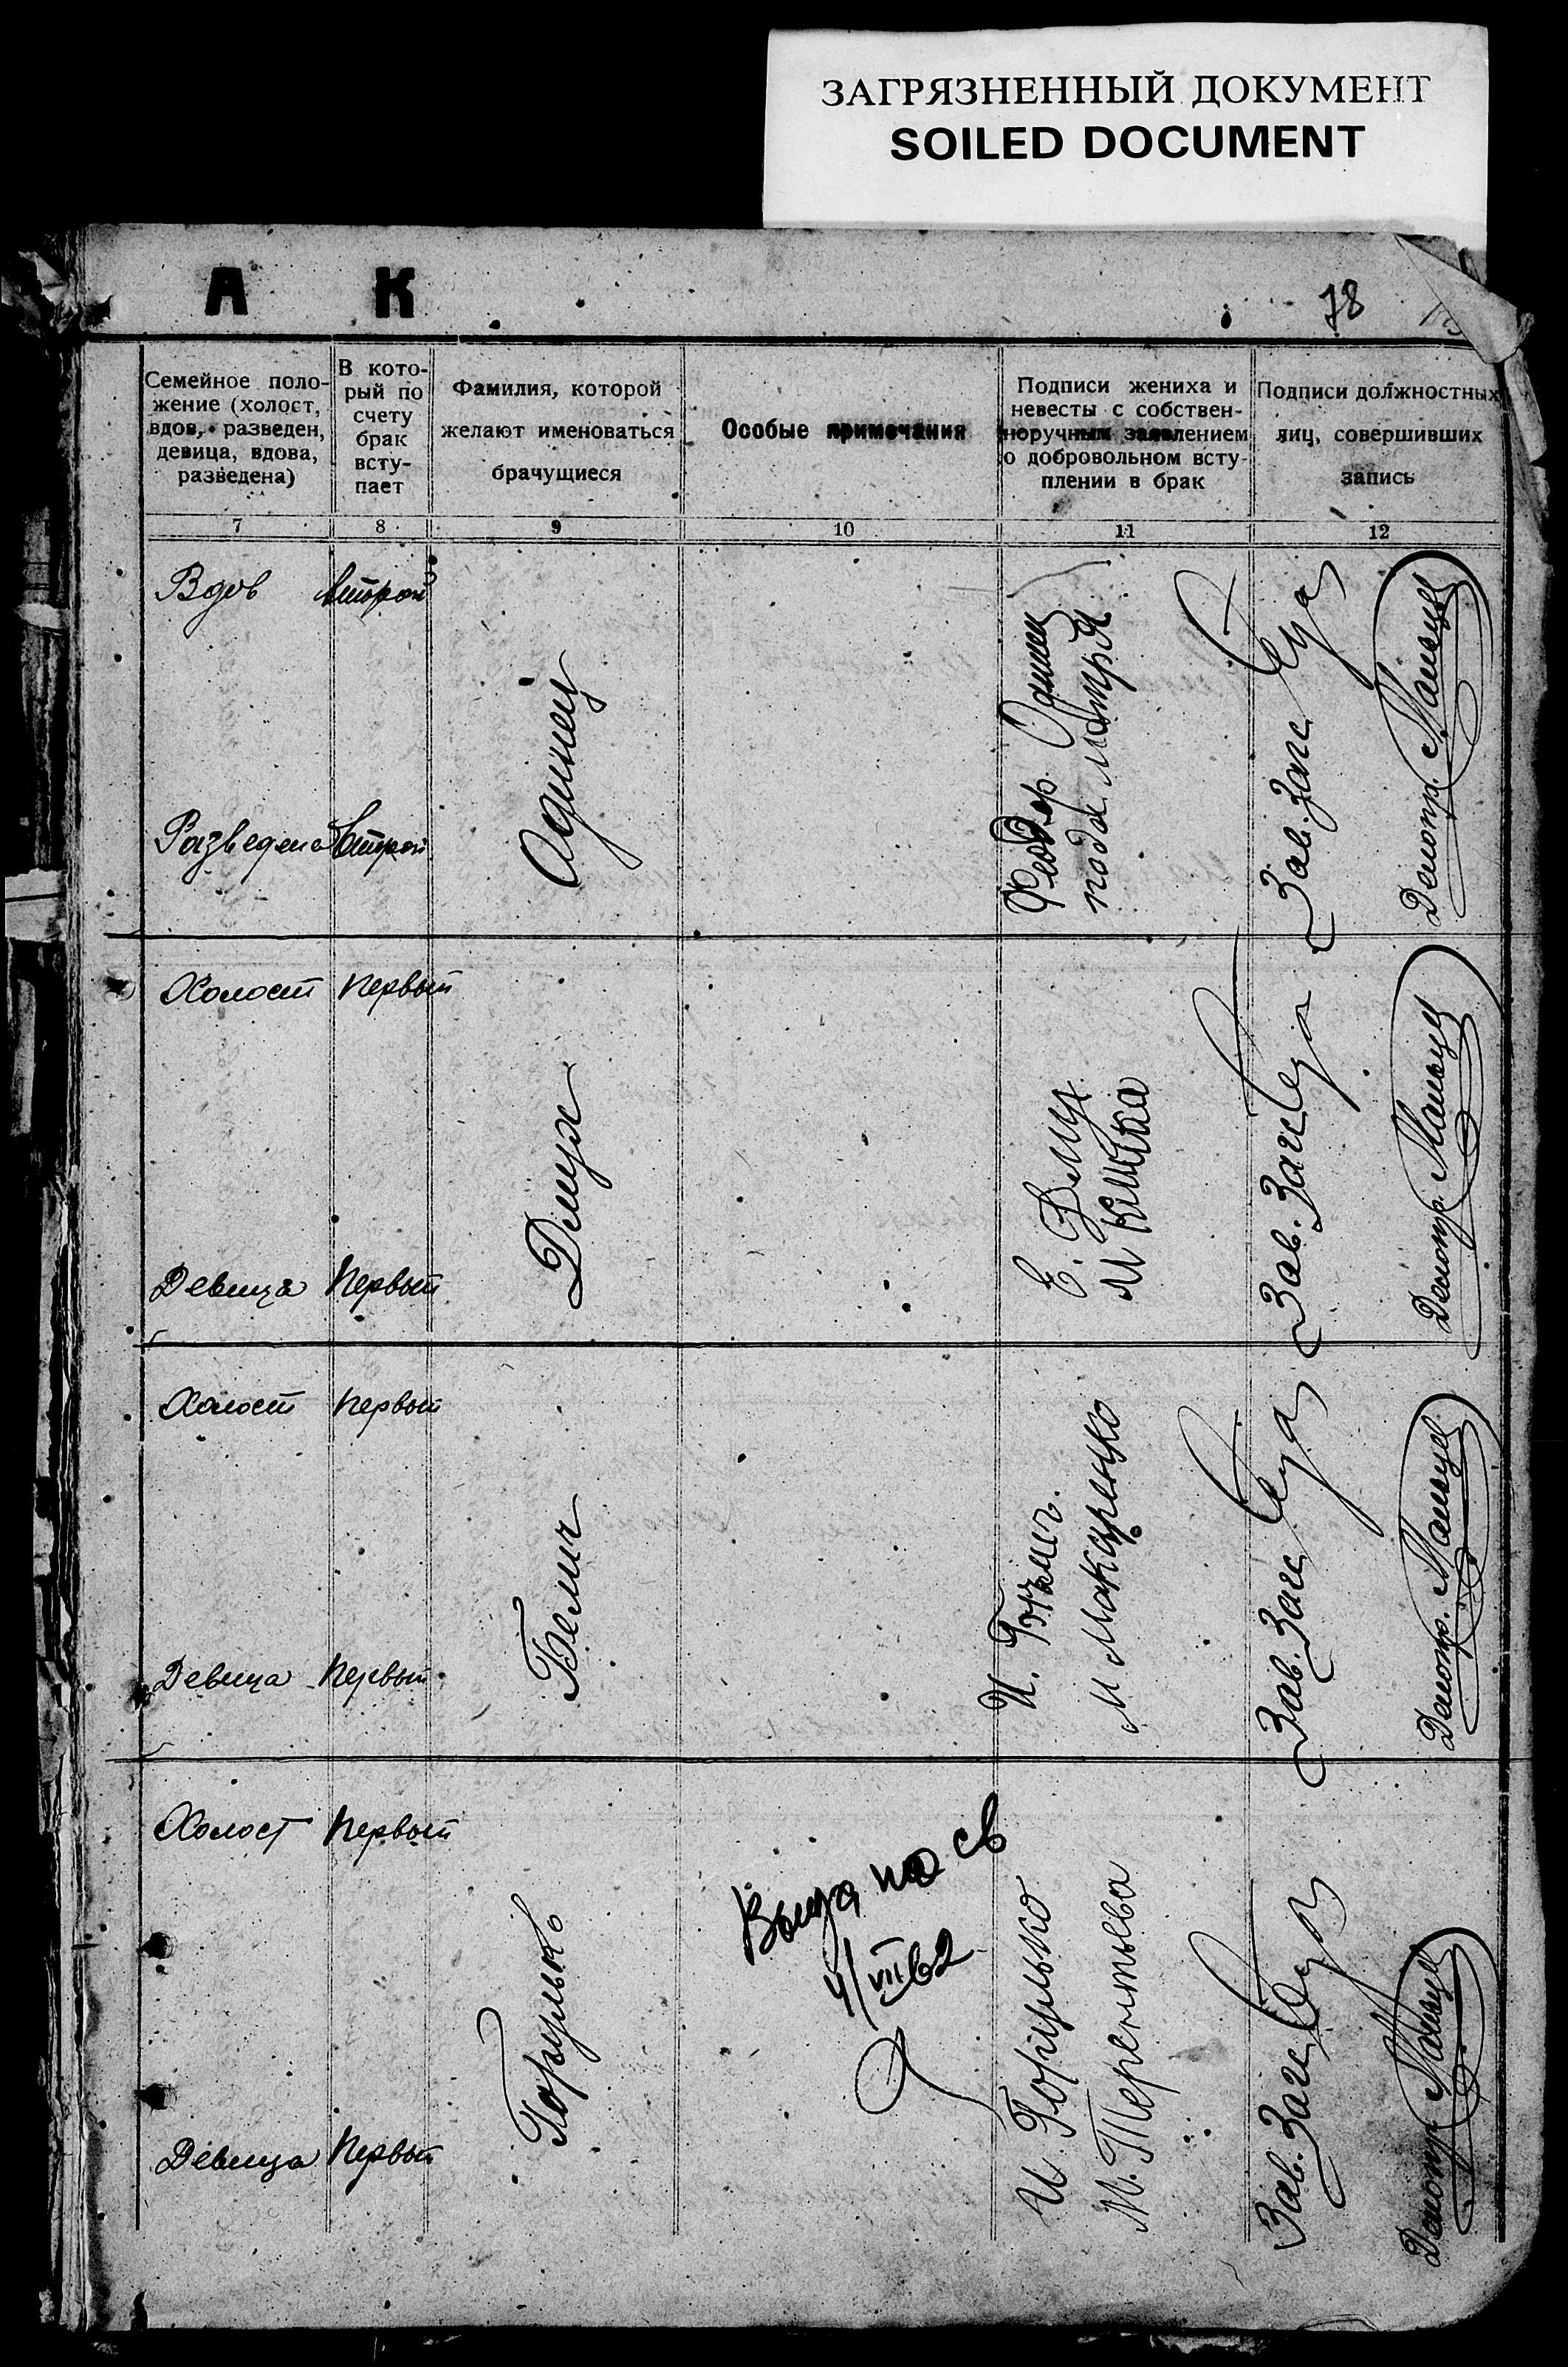 ЗАГРЯЗНЕННЫЙ ДОКУМЕНТ
SOILED DOCUMENT
А К
78
Семейное поло-
жение (холост,
вдов, разведен,
девица, вдова,
разведена)
В кото-
рый по
счету
брак
всту-
пает
Фамилия, которой
желают именоваться
брачущиеся
Особые примечания
Подписи жениха и
невесты с собствен-
норучным заявлением
о добровольном всту-
плении в брак
Подписи должностных
лиц, совершивших
запись
7 8 9 10 11 12
Вдов второй
Разведена Второй
Одинец
Федор Одинец
Зав. Загс
Делопр.
Холост первый
Девица Первый
Дмух
Е. Дмух
М Кишка
Зав. Загс
Делопр.
Холост первый
Девица Первый
Белич
И. Белич.
М Макуренко
Зав. Загс
Делопр.
Холост Первый
Девица Первый
Горулько
4/VII 62
И. Горулько
М. Терентьева
Зав. Загс
Делопр.